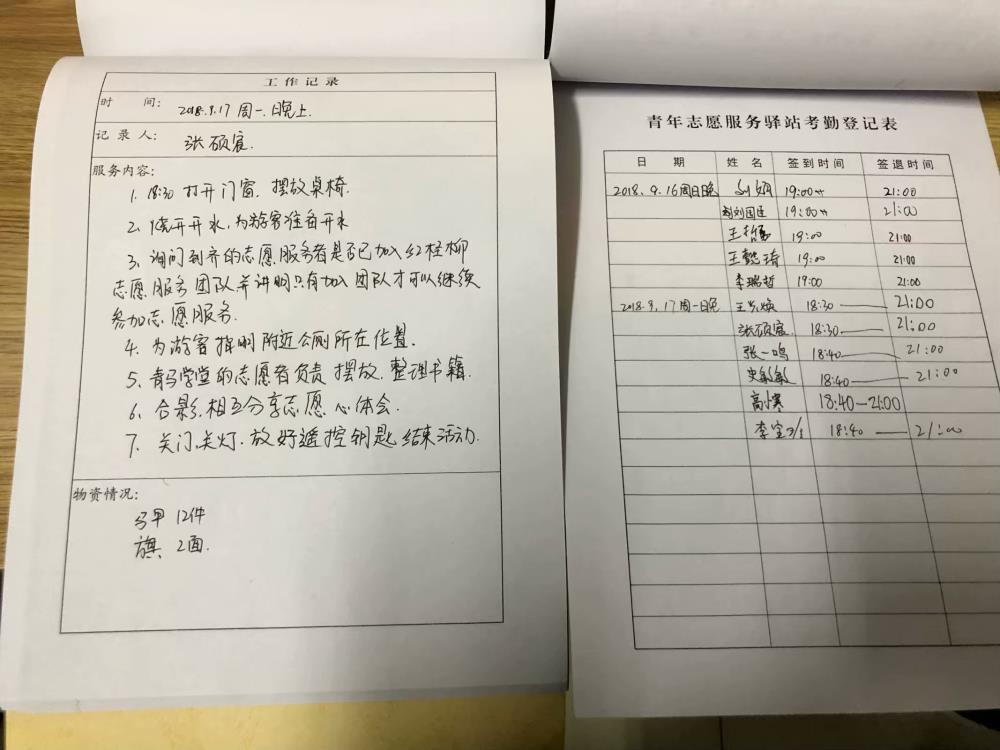 工作记录
时 间: 2018.9.17 周一.晚上.
记录人: 张硕宸.
服务内容:
1. 18:30 打开门窗. 摆放桌椅.
2. 烧开开水,为游客准备开水
3. 询问到齐的志愿服务者是否已加入红柽柳
志愿服务团队,并讲明只有加入团队才可以继续
参加志愿服务.
4. 为游客指明附近公厕所在位置.
5. 青马学堂的志愿者负责摆放.整理书籍.
6. 合影.相互分享志愿心体会.
7. 关门.关灯.放好遥控钥匙.结束活动.
物资情况:
马甲 12件
旗 2面.
青年志愿服务驿站考勤登记表
日 期 姓 名 签到时间 签退时间
2018.9.16周日晚 19:00 21:00
刘国臣 19:00 21:00
19:00 21:00
王懿琦 19:00 21:00
李瑞哲 19:00 21:00
2018.9.17周一日晚 18:30 — 21:00
张硕宸 18:30 — 21:00
张一鸣 18:40 — 21:00
18:40 — 21:00
高小寒 18:40—21:00
18:40 — 21:00